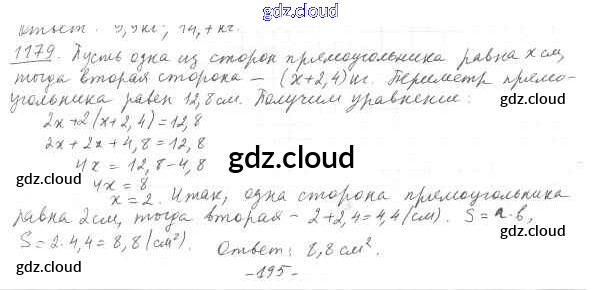 gdz.cloud
Ответ: 9,9кг; 14,7кг.
1179. Пусть одна из сторон прямоугольника равна x см,
gdz.cloud
тогда вторая сторона – (x+2,4)см. Периметр прямо-
угольника равен 12,8 см. Получим уравнение:
gdz.cloud gdz.cloud
2x+2(x+2,4)=12,8
2x+2x+4,8=12,8
4x=12,8-4,8
gdz.cloud
4x=8
gdz.cloud gdz.cloud
x=2. Итак, одна сторона прямоугольника
равна 2см, тогда вторая – 2+2,4=4,4(см). S=a·b,
S=2·4,4=8,8(см²). Ответ: 8,8см².
gdz.cloud gdz.cloud
-195-
gdz.cloud